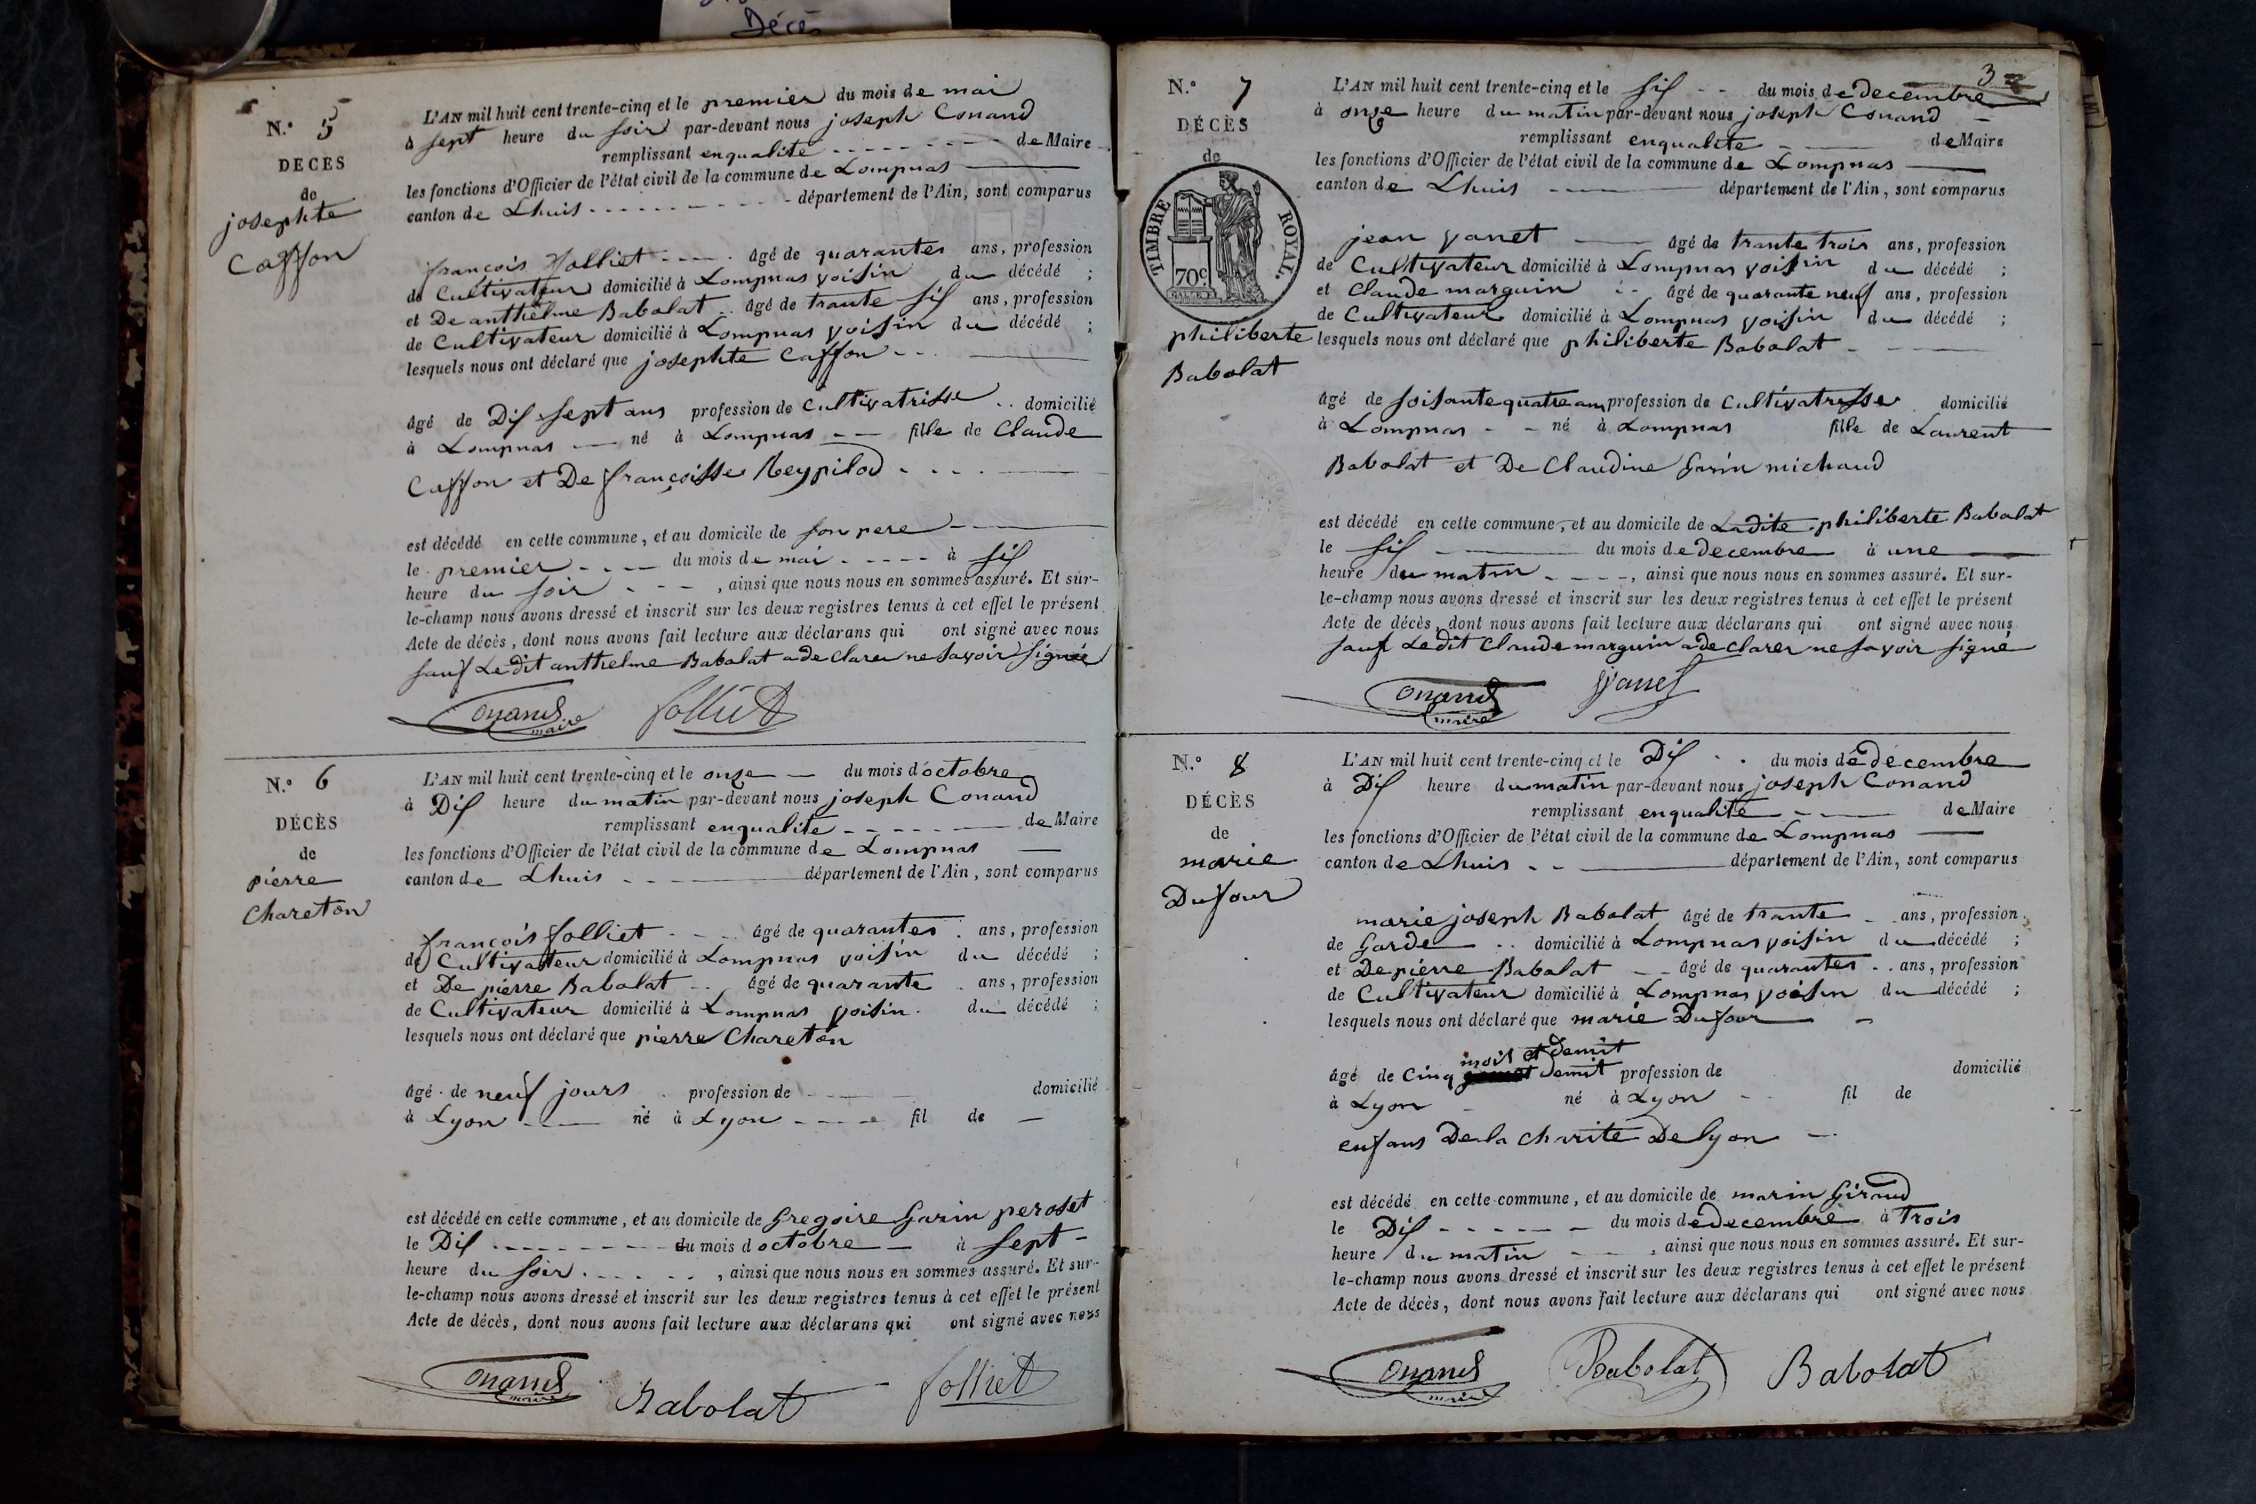 Décès
N.° 5
DÉCÈS
de
josephte
Caffon
L'AN mil huit cent trente-cinq et le premier du mois de mai
à sept heure du soir par-devant nous joseph Conand
remplissant enqualité de Maire
les fonctions d'Officier de l'état civil de la commune de Lompnas
canton de Lhuis département de l'Ain, sont comparus
françois folliet âgé de quarantes ans, profession
de Cultivateur domicilié à Lompnas voisin du décédé ;
et De anthelme Babolat âgé de trante sis ans, profession
de Cultivateur domicilié à Lompnas voisin du décédé ;
lesquels nous ont déclaré que josephte Caffon
âgé de Dis sept ans profession de Cultivatrisse domicilié
à Lompnas né à Lompnas fille de Claude
Caffon et De françoisse Reypilod
est décédé en cette commune, et au domicile de son pere
le premier du mois de mai à sis
heure du soir , ainsi que nous nous en sommes assuré. Et sur-
le-champ nous avons dressé et inscrit sur les deux registres tenus à cet effet le présent
Acte de décès, dont nous avons fait lecture aux déclarans qui ont signé avec nous
sauf Ledit anthelme Babolat a de clarer ne savoir signée
Conand maire folliet
N.° 6
DÉCÈS
de
pierre
Chareton
L'AN mil huit cent trente-cinq et le onze du mois d'octobre
à Dis heure du matin par-devant nous joseph Conand
remplissant enqualité de Maire
les fonctions d'Officier de l'état civil de la commune de Lompnas
canton de Lhuis département de l'Ain, sont comparus
françois folliet âgé de quarantes ans, profession
de Cultivateur domicilié à Lompnas voisin du décédé ;
et De pierre Babolat âgé de quarante ans, profession
de Cultivateur domicilié à Lompnas voisin du décédé ;
lesquels nous ont déclaré que pierre Chareton
âgé de neuf jours profession de domicilié
à Lyon né à Lyon fil de
est décédé en cette commune, et au domicile de Gregoire Garin peroset
le Dis du mois d octobre à sept
heure du soir , ainsi que nous nous en sommes assuré. Et sur-
le-champ nous avons dressé et inscrit sur les deux registres tenus à cet effet le présent
Acte de décès, dont nous avons fait lecture aux déclarans qui ont signé avec nous
Conand maire Babolat folliet
3
N.° 7
DÉCÈS
de
TIMBRE ROYAL.
70c
philiberte
Babolat
L'AN mil huit cent trente-cinq et le sis du mois de decembre
à onze heure du matin par-devant nous joseph Conand
remplissant enqualité de Maire
les fonctions d'Officier de l'état civil de la commune de Lompnas
canton de Lhuis département de l'Ain, sont comparus
jean vanet âgé de trante trois ans, profession
de Cultivateur domicilié à Lompnas voisin du décédé ;
et Claude marguin âgé de quarante neuf ans, profession
de Cultivateur domicilié à Lompnas voisin du décédé ;
lesquels nous ont déclaré que philiberte Babolat
âgé de soisante quatre ans profession de Cultivatrisse domicilié
à Lompnas né à Lompnas fille de Laurent
Babolat et De Claudine Garin michaud
est décédé en cette commune, et au domicile de Ladite philiberte Babolat
le sis du mois de decembre à une
heure du matin , ainsi que nous nous en sommes assuré. Et sur-
le-champ nous avons dressé et inscrit sur les deux registres tenus à cet effet le présent
Acte de décès, dont nous avons fait lecture aux déclarans qui ont signé avec nous
sauf Ledit Claude marguin a de clarer ne savoir signé
Conand maire jvanet
N.° 8
DÉCÈS
de
marie
Dufour
L'AN mil huit cent trente-cinq et le Dis du mois de décembre
à Dis heure du matin par-devant nous joseph Conand
remplissant enqualité de Maire
les fonctions d'Officier de l'état civil de la commune de Lompnas
canton de Lhuis département de l'Ain, sont comparus
marie joseph Babolat âgé de trante ans, profession
de Garde domicilié à Lompnas voisin du décédé ;
et De pierre Babolat âgé de quarantes ans, profession
de Cultivateur domicilié à Lompnas voisin du décédé ;
lesquels nous ont déclaré que marie Dufour
mois et demit
âgé de Cinq demit profession de domicilié
à Lyon né à Lyon fil de
enfans De la charité De lyon
est décédé en cette commune, et au domicile de marin Giraud
le Dis du mois de decembre à Trois
heure du matin , ainsi que nous nous en sommes assuré. Et sur-
le-champ nous avons dressé et inscrit sur les deux registres tenus à cet effet le présent
Acte de décès, dont nous avons fait lecture aux déclarans qui ont signé avec nous
Conand maire Babolat Babolat